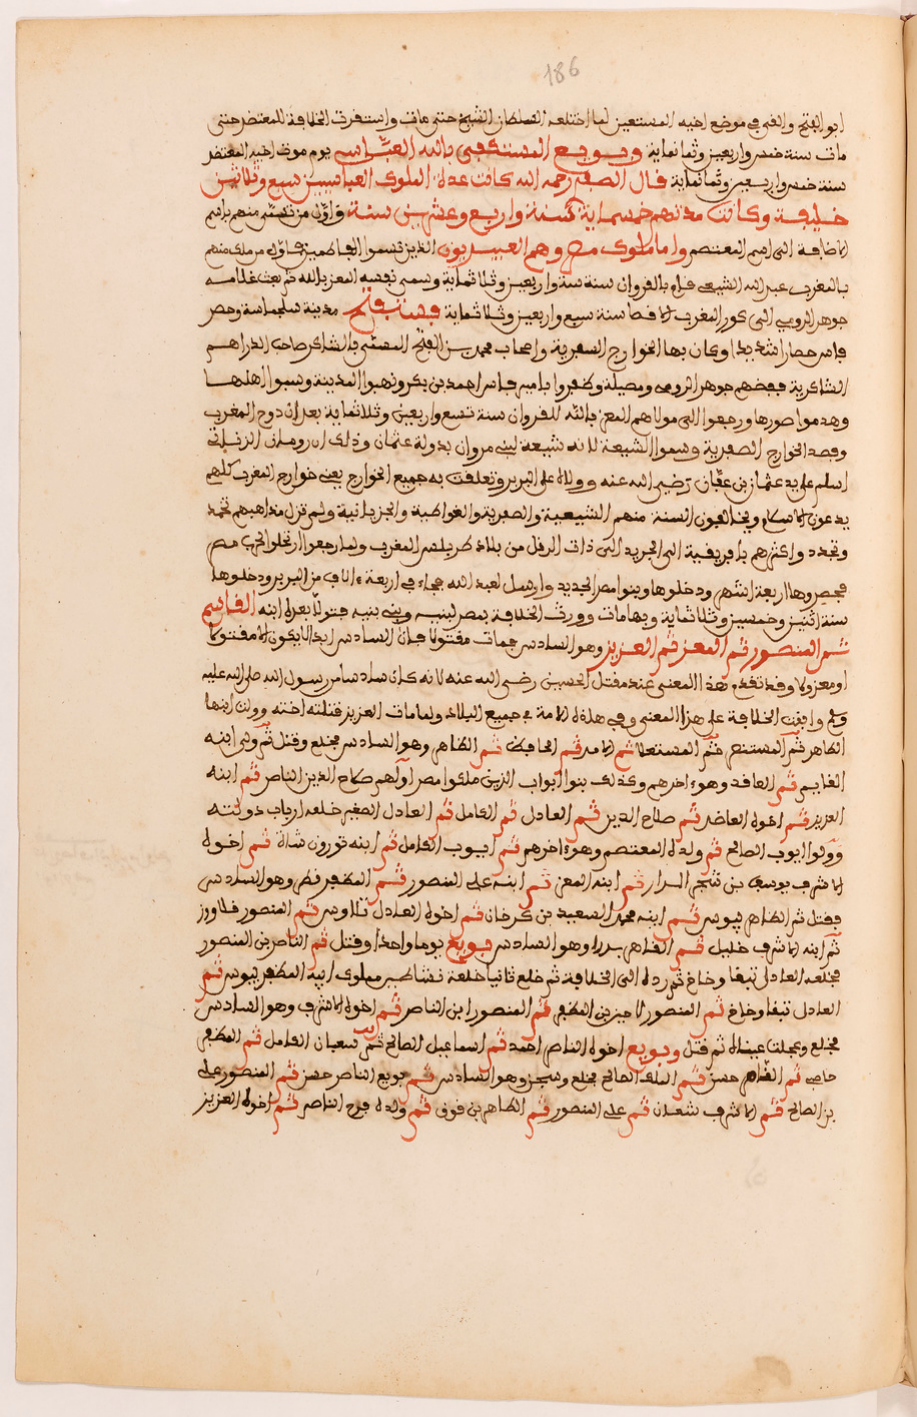 186
ابو الفتح والفي في موضع اخيه المستعين لما اختلعه السلطان الشيخ حتى مات واستقرت الخلافة للمعتضد حتى
مات سنة خمس واربعين وثمانماية وبويع المستكفي بالله العباسي يوم موت اخيه المعتضد
سنة خمس واربعين وثمانماية قال الصفدي رحمه الله كانت عدة الملوك العباسيين سبع وثلاثين
خليفة وكانت مدتهم خمسماية سنة واربع وعشرين سنة واول من تسمى منهم باسم
الاضافة الى اسم المعتصم واما ملوك مصر وهم العبيديون الذين تسموا الفاطميين فاول من ملك منهم
بالمغرب عبد الله الشيعي قام بالقروان سنة ستة واربعين وثلاثماية وسمى نفسه المعز بالله ثم بعث غلامه
جوهر الرومي الى كور المغرب الاقصا سنة سبع واربعين وثلاثماية ففتح مدينة سجلماسة وحصر
فاس حصارا شديدا وكان بها الخوارج الصفرية واصحاب محمد بن الفتح المسمى بالشاكر صاحب الدراهم
الشاكرية فقبضهم جوهر الرومي وظفروا بامير فاس احمد بن بكر ونهبوا المدينة وسبوا اهلها
وهدموا صورها ورجعوا الى مولاهم المعز بالله للقروان سنة تسع واربعين وثلاثماية بعد ان دوخ المغرب
وقصد الخوارج الصفرية وسموا الشيعة لانه شيعة لبني مروان بدولة عثمان وذلك ان رومان الزناتي
اسلم على يد عثمان بن عفان رضي الله عنه وولاه على البربر وتعلقت به جميع الخوارج يعني خوارج المغرب كلهم
يدعون الاسلام ويخالفون السنة منهم الشيعية والصفرية والغواطية والجزيانية ولم تزل مذاهبهم تخمد
وتجدد واكثرهم بافريقية الى الجريد الى ذات الرمل من بلاد طربلس المغرب ولما رجعوا ارتحلوا الحرب مصر
فحصروها اربعة اشهر ودخلوها وبنوا مصر الجديد وارسل لعبد الله فجاء في اربعة ءالاف من البربر ودخلوها
سنة اثنين وخمسين وثلاثماية وبها مات وورث الخلافة بمصر لبنيه وبني بنيه فتولا بعده ابنه القاسم
ثم المنصور ثم المعز ثم العزيز وهو السادس فمات مقتولا فان السادس ابدا لا يكون الا مقتولا
او معزولا وقد تقدم هذا المعنى عند مقتل الحسين رضي الله عنه لانه كان سادسا من رسول الله صلى الله عليه
وسلم واتفقت الخلافة على هذا المعنى وفي هذه الامة في جميع البلاد ولما مات العزيز قتلته اخته وولت ابنها
الظاهر ثم المستنصر ثم المستعلا ثم الامر ثم الحافظ ثم الظافر وهو السادس فخلع وقتل ثم ولي ابنه
الفايز ثم العاضد وهو ءاخرهم وكذلك بنوا ايوب الذين ملكوا مصر اولهم صلاح الدين الناصر ثم ابنه
العزيز ثم اخوه العاضد ثم صلاح الدين ثم العادل ثم الكامل ثم العادل الصغير خلعه ارباب دولته
وولوا ايوب الصالح ثم ولده المعتصم وهو ءاخرهم ثم ايوب الكامل ثم ابنه تورون شاه ثم اخوه
الاشرف يوسف بن شجر الدرار ثم ابنه المعز ثم ابنه على المنصور ثم المظفر قطز وهو السادس
فقتل ثم الظاهر بيبوس ثم ابنه محمد السعيد بن كرخان ثم اخوه العادل ثم المنصور قلاوز
ثم ابنه الاشرف خليل ثم القاهر بيدرا وهو السادس بويع يوما واحدا وقتل ثم الناصر بن المنصور
فخلعه العادل تبغا وخلع ثم رده الى الخلافة ثم خلع ثانيا خلعه مملوك ابيه المظفر بيبوس ثم
العادل تبغا وخلع ثم المنصور لاجين بن المظفر ثم المنصور ابن الناصر ثم اخوه الاشرف وهو السادس
فخلع وعجلت عيناه ثم قتل وبويع اخوه الناصر احمد ثم اسماعيل الصالح ثم شعبان الكامل ثم المظفر
حاجي ثم الظاهر حسن ثم الملك الصالح فخلع وسجن وهو السادس ثم بويع الناصر حسن ثم المنصور علي
بن الصالح ثم الاشرف شعبان ثم علي المنصور ثم الظاهر بن قوق ثم ولده فرج الناصر ثم اخوه العزيز